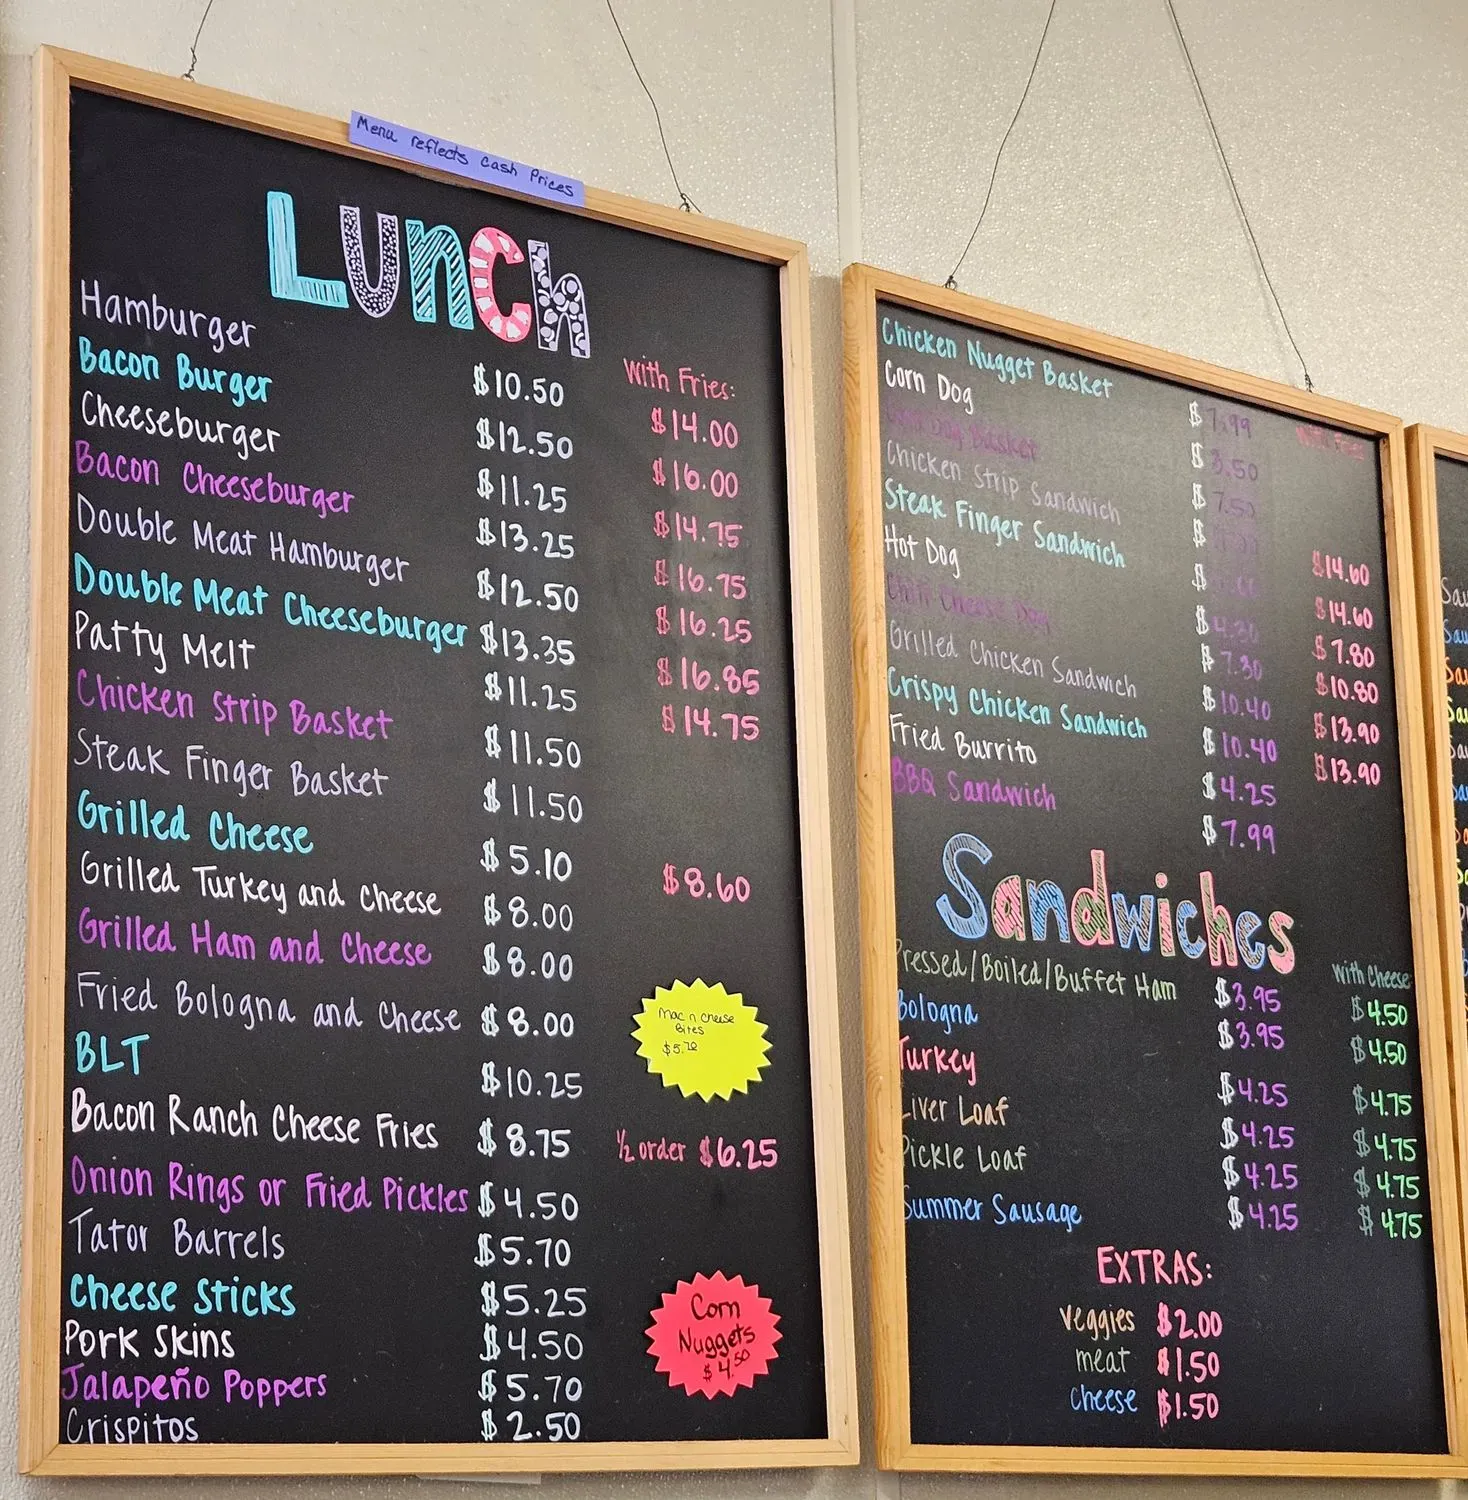 Menu reflects cash Prices
Lunch
With Fries:
Hamburger $10.50 $14.00
Bacon Burger $12.50 $16.00
Cheeseburger $11.25 $14.75
Bacon Cheeseburger $13.25 $16.75
Double Meat Hamburger $12.50 $16.25
Double Meat Cheeseburger $13.35 $16.85
Patty Melt $11.25 $14.75
Chicken Strip Basket $11.50
Steak Finger Basket $11.50
Grilled Cheese $5.10 $8.60
Grilled Turkey and Cheese $8.00
Grilled Ham and Cheese $8.00
Fried Bologna and Cheese $8.00
BLT $10.25
Bacon Ranch Cheese Fries $8.75 ½ order $6.25
Onion Rings or Fried Pickles $4.50
Tator Barrels $5.70
Cheese Sticks $5.25
Pork Skins $4.50
Jalapeño Poppers $5.70
Crispitos $2.50
Mac n Cheese
Bites
$5.70
Corn
Nuggets
$4.50
With Fries
Chicken Nugget Basket $7.99
Corn Dog $3.50
Corn Dog Basket $7.50
Chicken Strip Sandwich $ $14.60
Steak Finger Sandwich $ $14.60
Hot Dog $4.30 $7.80
Chili Cheese Dog $7.30 $10.80
Grilled Chicken Sandwich $10.40 $13.90
Crispy Chicken Sandwich $10.40 $13.90
Fried Burrito $4.25
BBQ Sandwich $7.99
Sandwiches
With Cheese
Pressed/Boiled/Buffet Ham $3.95 $4.50
Bologna $3.95 $4.50
Turkey $4.25 $4.75
Liver Loaf $4.25 $4.75
Pickle Loaf $4.25 $4.75
Summer Sausage $4.25 $4.75
EXTRAS:
veggies $2.00
meat $1.50
cheese $1.50